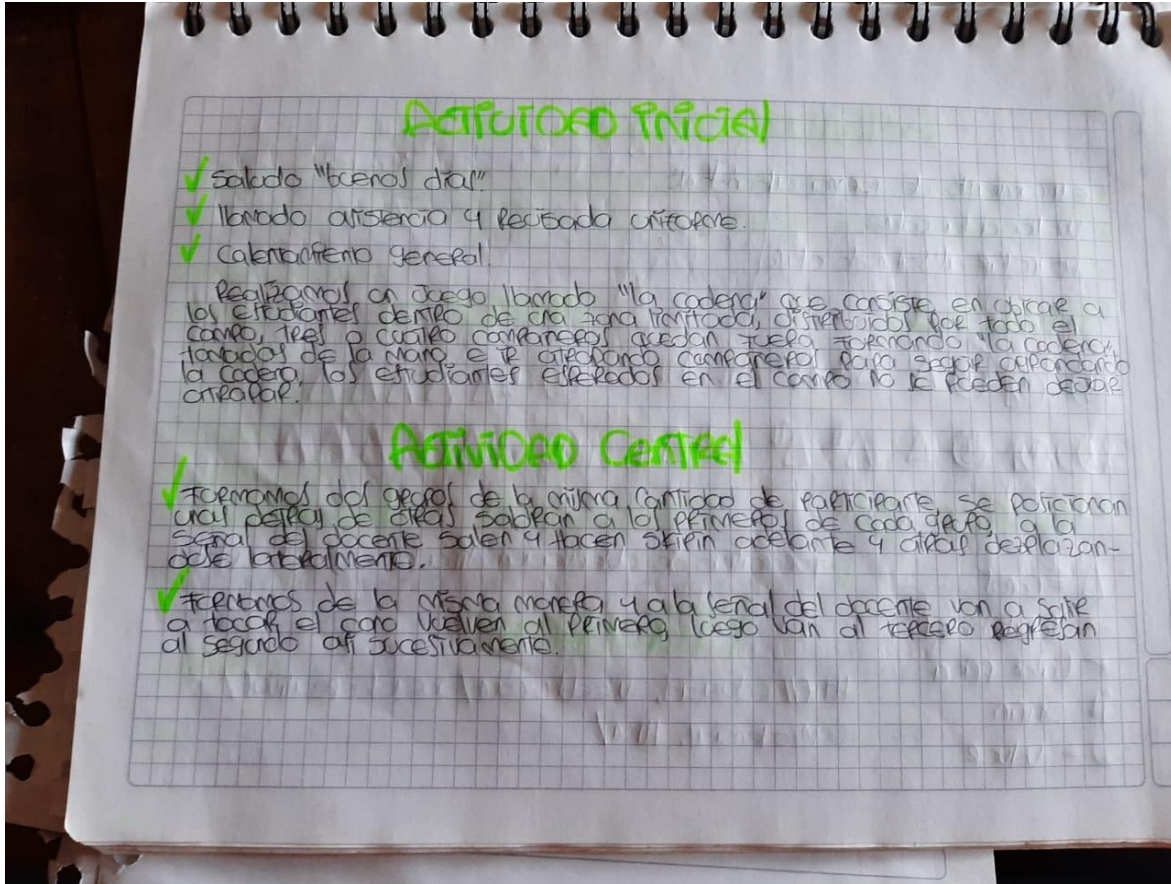 Actividad inicial
Saludo "buenos días"
llamado asistencia y revisada uniforme.
Calentamiento general.
Realizamos un juego llamado "la cadena" que consiste en ubicar a
los estudiantes dentro de una zona limitada, distribuidos por todo el
campo, tres o cuatro compañeros quedan fuera formando "la cadena",
tomados de la mano e ir atrapando compañeros para seguir agrandando
la cadena, los estudiantes esperados en el campo no se pueden dejar
atrapar.
Actividad Central
Formamos dos grupos de la misma cantidad de participante, se posicionan
unas detras de otras saldran a los primeros de cada grupo, a la
señal del docente salen y hacen skipin adelante y atras desplazan-
dose lateralmente.
Formamos de la misma manera y a la señal del docente van a salir
a tocar el cono vuelven al primero, luego van al tercero regresan
al segundo asi sucesivamente.